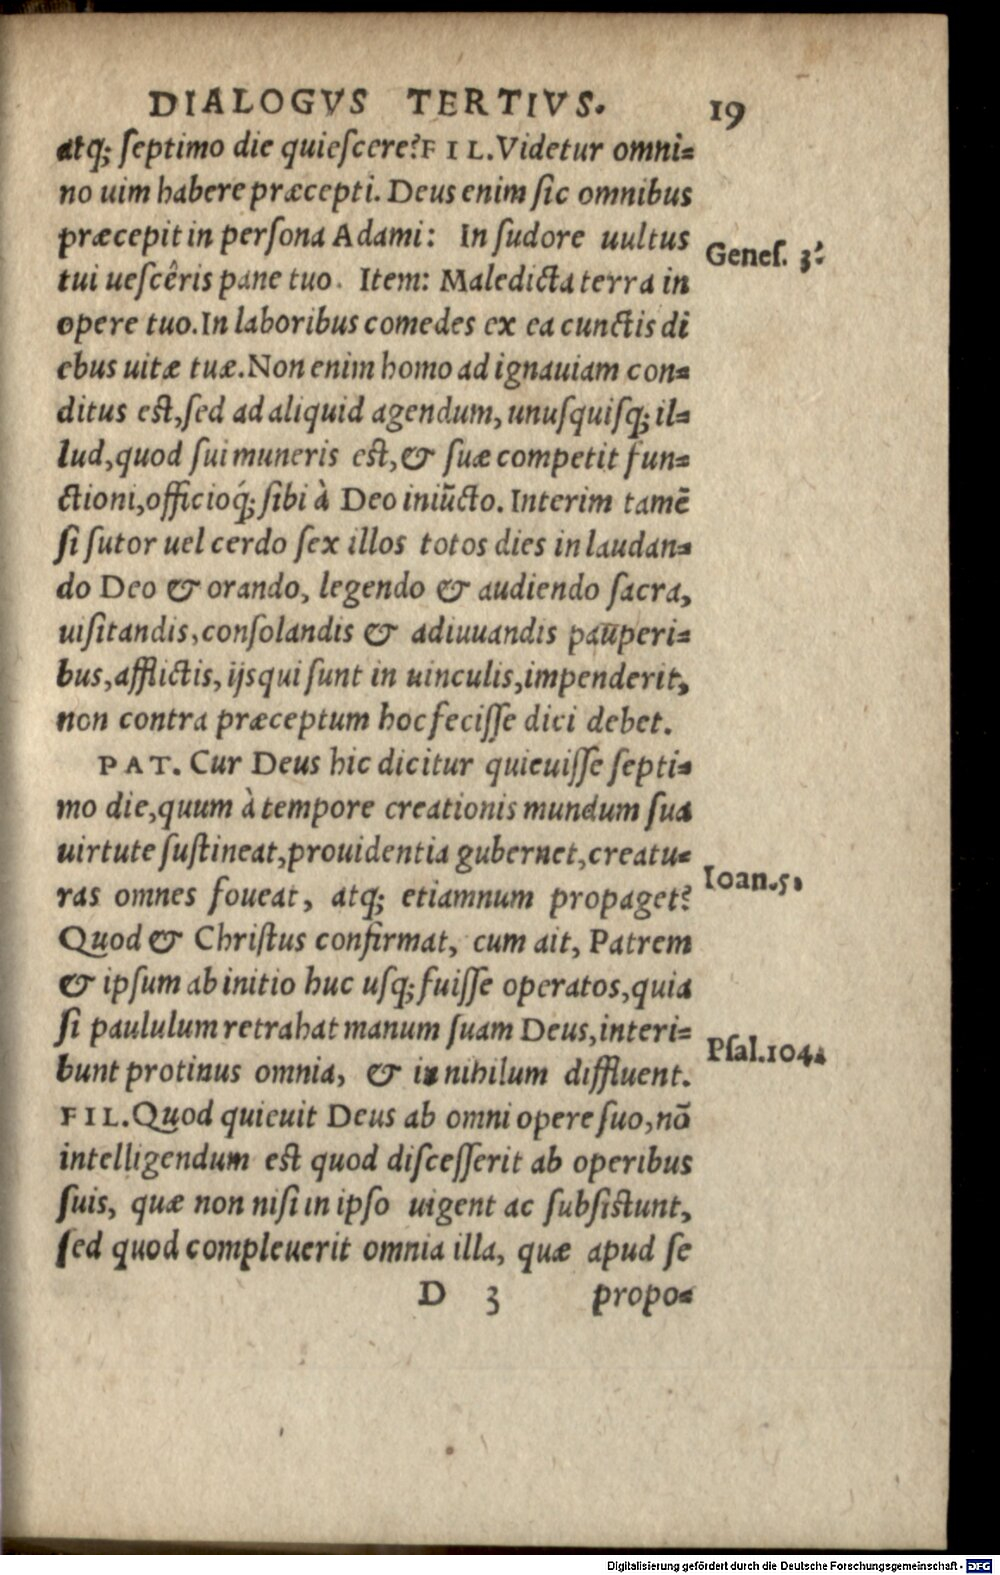 DIALOGVS TERTIVS. 19
atq; ſeptimo die quieſcere? FIL. Videtur omni=
no uim habere præcepti. Deus enim ſic omnibus
præcepit in perſona Adami: In ſudore uultus
Geneſ. 3.
tui ueſcêris pane tuo. Item: Maledicta terra in
opere tuo. In laboribus comedes ex ea cunctis di
ebus uitæ tuæ. Non enim homo ad ignauiam con=
ditus eſt, ſed ad aliquid agendum, unuſquiſq; il=
lud, quod ſui muneris eſt, & ſuæ competit fun=
ctioni, officioq́; ſibi à Deo iniūcto. Interim tamē
ſi ſutor uel cerdo ſex illos totos dies in laudan=
do Deo & orando, legendo & audiendo ſacra,
uiſitandis, conſolandis & adiuuandis pauperi=
bus, afflictis, ijs qui ſunt in uinculis, impenderit,
non contra præceptum hoc feciſſe dici debet.
PAT. Cur Deus hic dicitur quieuiſſe ſepti=
mo die, quum à tempore creationis mundum ſua
uirtute ſuſtineat, prouidentia gubernet, creatu=
Ioan. 5.
ras omnes foueat, atq; etiamnum propaget?
Quod & Chriſtus confirmat, cum ait, Patrem
& ipſum ab initio huc uſq; fuiſſe operatos, quia
ſi paululum retrahat manum ſuam Deus, interi=
Pſal. 104.
bunt protinus omnia, & in nihilum diffluent.
FIL. Quod quieuit Deus ab omni opere ſuo, nō
intelligendum eſt quod diſceſſerit ab operibus
ſuis, quæ non niſi in ipſo uigent ac ſubſiſtunt,
ſed quod compleuerit omnia illa, quæ apud ſe
D 3 propo=
Digitalisierung gefördert durch die Deutsche Forschungsgemeinschaft - DFG